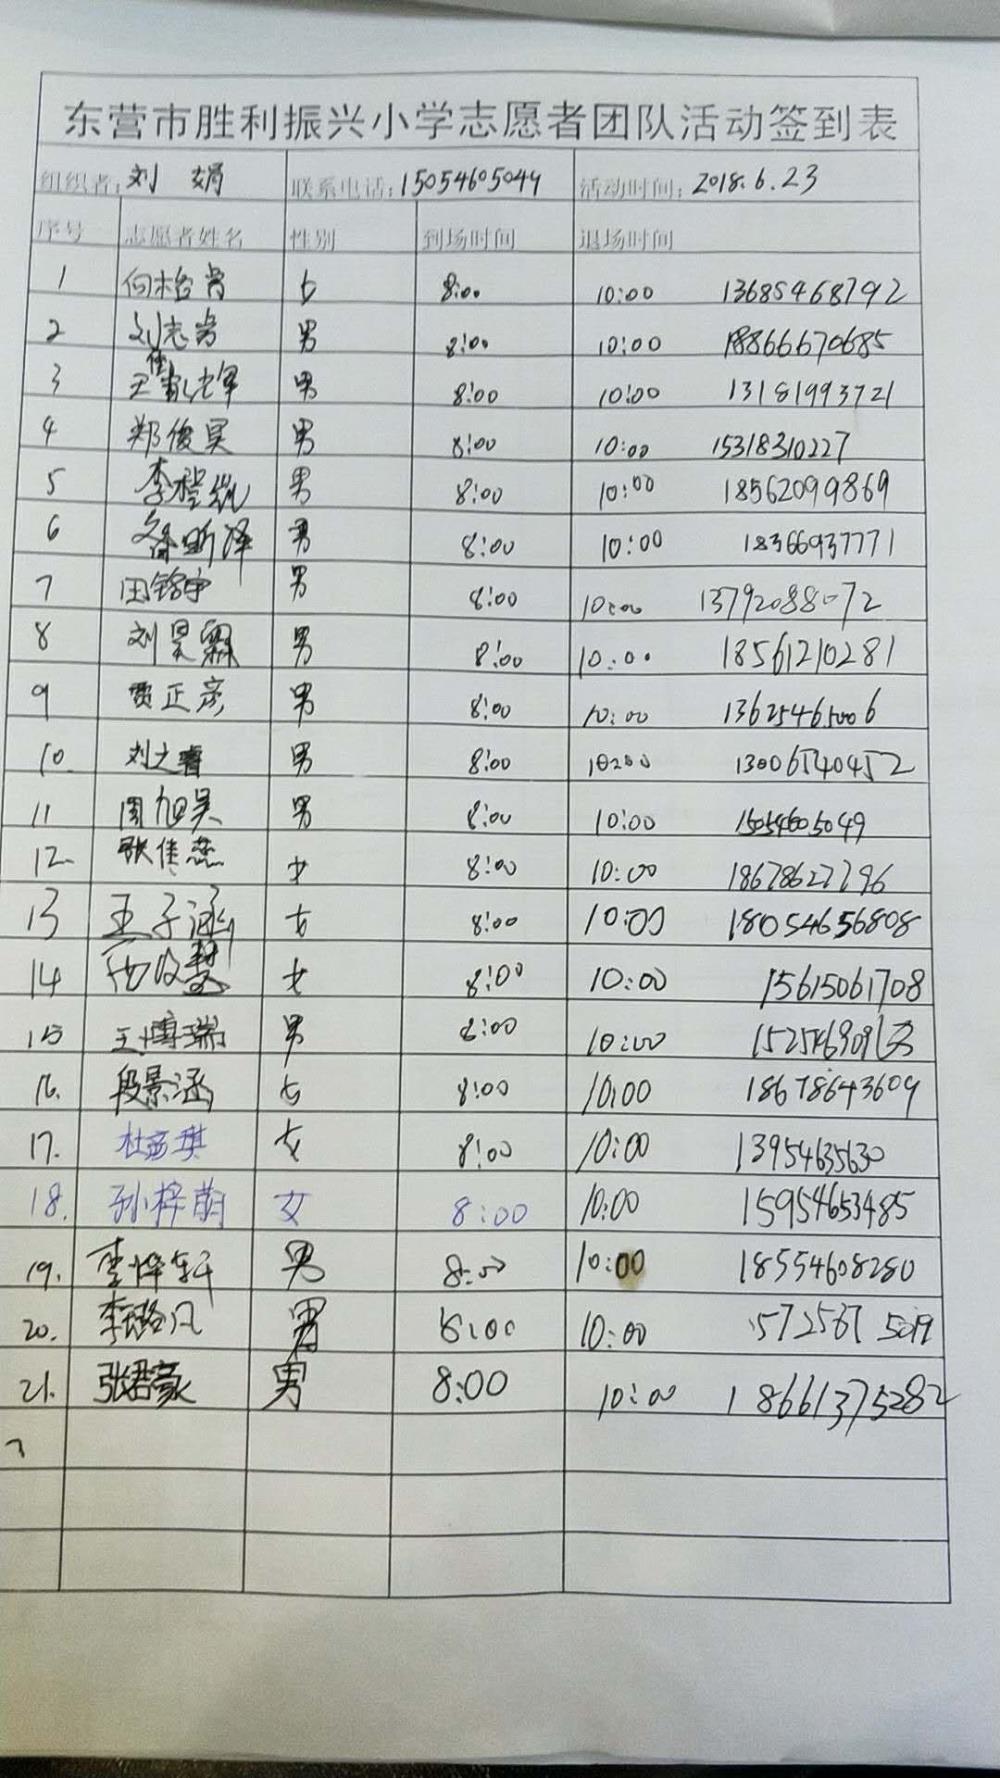 东营市胜利振兴小学志愿者团队活动签到表
组织者:刘 娟 联系电话:15054605049 活动时间:2018.6.23
序号 志愿者姓名 性别 到场时间 退场时间
1 女 8:00 10:00 13685468792
2 刘志尚 男 8:00 10:00 18866670685
3 男 8:00 10:00 13181993721
4 郑俊昊 男 8:00 10:00 15318310227
5 李橙凯 男 8:00 10:00 18562099869
6 男 8:00 10:00 18366937771
7 田铭宇 男 8:00 10:00 13792088072
8 刘昊霖 男 8:00 10:00 18561210281
9 贾正彦 男 8:00 10:00 13625465006
10. 刘之睿 男 8:00 10:00 13006540452
11 周旭昊 男 8:00 10:00 15054605049
12. 张佳蕊 女 8:00 10:00 18678627796
13 王子涵 女 8:00 10:00 18054656808
14 女 8:00 10:00 15615061708
15 王博瑞 男 8:00 10:00
16. 段景涵 女 8:00 10:00 18678643609
17. 女 8:00 10:00 13954635630
18. 孙梓萌 女 8:00 10:00 15954653485
19. 李烨轩 男 8:00 10:00 18554608280
20. 李璐凡 男 8:00 10:00
21. 张君豪 男 8:00 10:00 18661375282